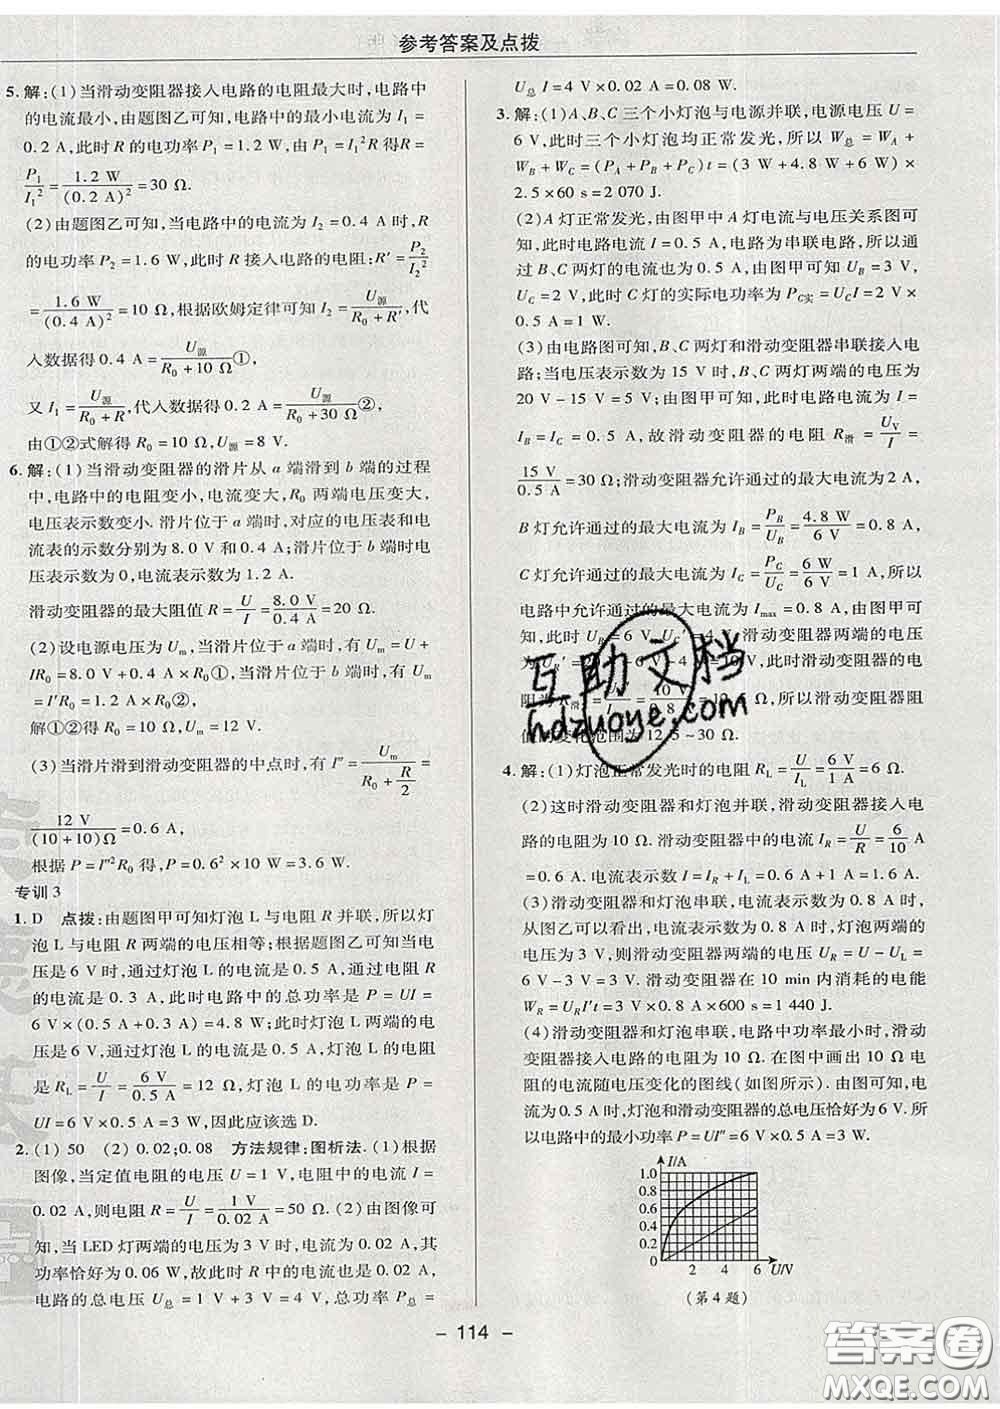 参考答案及点拨
5. 解:(1)当滑动变阻器接入电路的电阻最大时,电路中
的电流最小,由题图乙可知,电路中的最小电流为 I₁=
0.2 A,此时 R 的电功率 P₁=1.2 W,由 P₁=I₁²R 得R=
P₁/I₁²=1.2 W/(0.2 A)²=30 Ω.
(2)由题图乙可知,当电路中的电流为 I₂=0.4 A 时,R
的电功率 P₂=1.6 W,此时 R 接入电路的电阻:R′=P₂/I₂²
=1.6 W/(0.4 A)²=10 Ω,根据欧姆定律可知 I₂=U源/(R₀+R′),代
入数据得 0.4 A=U源/(R₀+10 Ω)①,
又 I₁=U源/(R₀+R),代入数据得 0.2 A=U源/(R₀+30 Ω)②,
由①②式解得 R₀=10 Ω,U源=8 V.
6. 解:(1)当滑动变阻器的滑片从 a 端滑到 b 端的过程
中,电路中的电阻变小,电流变大,R₀ 两端电压变大,
电压表示数变小.滑片位于 a 端时,对应的电压表和电
流表的示数分别为 8.0 V 和 0.4 A;滑片位于 b 端时电
压表示数为 0,电流表示数为 1.2 A.
滑动变阻器的最大阻值 R=U/I=8.0 V/0.4 A=20 Ω.
(2)设电源电压为 Uₘ,当滑片位于 a 端时,有 Uₘ=U+
IR₀=8.0 V+0.4 A×R₀①;当滑片位于 b 端时,有 Uₘ
=I′R₀=1.2 A×R₀②,
解①②得 R₀=10 Ω,Uₘ=12 V.
(3)当滑片滑到滑动变阻器的中点时,有 I″=Uₘ/(R₀+R/2)=
12 V/(10+10)Ω=0.6 A,
根据 P=I″²R₀ 得,P=0.6²×10 W=3.6 W.
专训 3
1. D 点拨:由题图甲可知灯泡 L 与电阻 R 并联,所以灯
泡 L 与电阻 R 两端的电压相等;根据题图乙可知当电
压是 6 V 时,通过灯泡 L 的电流是 0.5 A,通过电阻 R
的电流是 0.3 A,此时电路中的总功率是 P=UI=
6 V×(0.5 A+0.3 A)=4.8 W;此时灯泡 L 两端的电
压是 6 V,通过灯泡 L 的电流是 0.5 A,灯泡 L 的电阻
是 R_L=U/I=6 V/0.5 A=12 Ω,灯泡 L 的电功率是 P=
UI=6 V×0.5 A=3 W,因此应该选 D.
2. (1)50 (2)0.02;0.08 方法规律:图析法.(1)根据
图像,当定值电阻的电压 U=1 V,电阻中的电流 I=
0.02 A,则电阻 R=U/I=1 V/0.02 A=50 Ω.(2)由图像可
知,当 LED 灯两端的电压为 3 V 时,电流为 0.02 A,其
功率恰好为 0.06 W,故此时 R 中的电流也是 0.02 A,
电路的总电压 U总=1 V+3 V=4 V,总功率 P总=
U总 I=4 V×0.02 A=0.08 W.
3. 解:(1)A、B、C 三个小灯泡与电源并联,电源电压 U=
6 V,此时三个小灯泡均正常发光,所以 W总=W_A+
W_B+W_C=(P_A+P_B+P_C)t=(3 W+4.8 W+6 W)×
2.5×60 s=2 070 J.
(2)A 灯正常发光,由图甲中 A 灯电流与电压关系图可
知,此时电路电流 I=0.5 A,电路为串联电路,所以通
过 B、C 两灯的电流也为 0.5 A,由图甲可知 U_B=3 V,
U_C=2 V,此时 C 灯的实际电功率为 P_C实=U_C I=2 V×
0.5 A=1 W.
(3)由电路图可知,B、C 两灯和滑动变阻器串联接入电
路;当电压表示数为 15 V 时,B、C 两灯两端的电压为
20 V-15 V=5 V;由图甲可知,此时电路电流为 I=
I_B=I_C=0.5 A,故滑动变阻器的电阻 R滑=U_V/I=
15 V/0.5 A=30 Ω;滑动变阻器允许通过的最大电流为 2 A,
B 灯允许通过的最大电流为 I_B=P_B/U_B=4.8 W/6 V=0.8 A,
C 灯允许通过的最大电流为 I_C=P_C/U_C=6 W/6 V=1 A,所以
电路中允许通过的最大电流为 I_max=0.8 A,由图甲可
知,此时 U_B′=6 V,U_C′=4 V,滑动变阻器两端的电压
为 =10 V,此时滑动变阻器的电
阻为 ,所以滑动变阻器阻
值的变化范围为 12.5~30 Ω.
4. 解:(1)灯泡正常发光时的电阻 R_L=U/I_L=6 V/1 A=6 Ω.
(2)这时滑动变阻器和灯泡并联,滑动变阻器接入电
路的电阻为 10 Ω.滑动变阻器中的电流 I_R=U/R=6/10 A
=0.6 A.电流表示数 I=I_R+I_L=0.6 A+1 A=1.6 A.
(3)滑动变阻器和灯泡串联,电流表示数为 0.8 A 时,
从图乙可以看出,灯泡中的电流为 0.8 A 时,灯泡两端的
电压为 3 V,则滑动变阻器两端的电压 U_R=U-U_L=
6 V-3 V=3 V.滑动变阻器在 10 min 内消耗的电能
W_R=U_R I′t=3 V×0.8 A×600 s=1 440 J.
(4)滑动变阻器和灯泡串联,电路中功率最小时,滑动
变阻器接入电路的电阻为 10 Ω.在图中画出 10 Ω 电
阻的电流随电压变化的图线(如图所示).由图可知,电流
为 0.5 A 时,灯泡和滑动变阻器的总电压恰好为 6 V.所
以电路中的最小功率 P=UI″=6 V×0.5 A=3 W.
I/A
1.0
0.8
0.6
0.4
0.2
0
2 4 6 U/V
(第 4 题)
互助文档
hdzuoye.com
- 114 -
答案圈
MXQE.COM